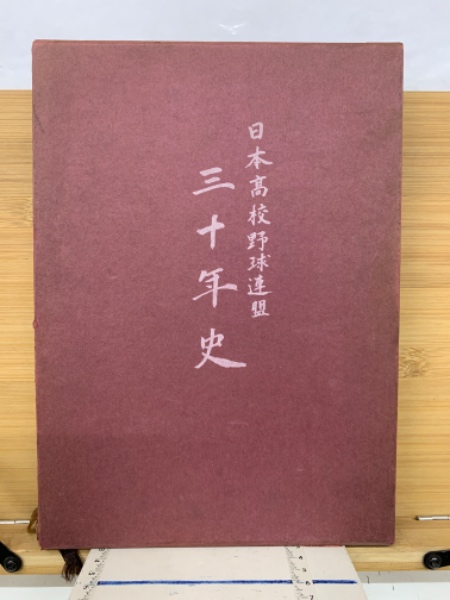 日本高校野球連盟
三十年史